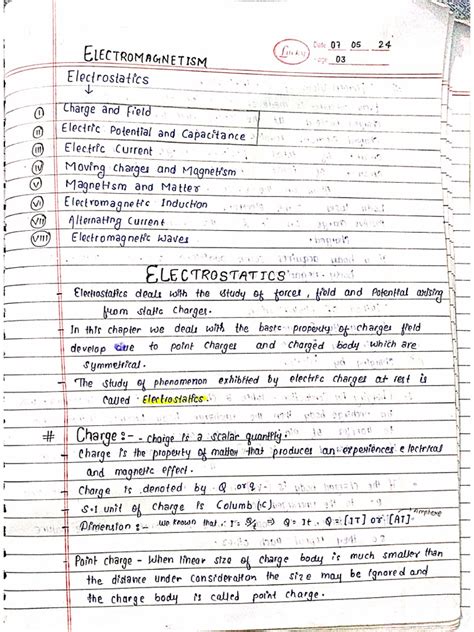 Lucky
Date 07 05 24
Page 03
ELECTROMAGNETISM
Electrostatics
↓
(I) Charge and field
(II) Electric Potential and Capacitance
(III) Electric Current
(IV) Moving Charges and Magnetism
(V) Magnetism and Matter
(VI) Electromagnetic Induction
(VII) Alternating Current
(VIII) Electromagnetic Waves
ELECTROSTATICS
- Electrostatics deals with the study of forces, field and Potential arising
from static charges.
- In this chapter we deals with the basic property of charges field
develop due to point charges and charged body which are
symmetrical.
- The study of phenomenon exhibited by electric charges at rest is
called Electrostatics.
# Charge :- - charge is a scalar quantity.
- Charge is the property of matter that produces an experiences electrical
and magnetic effect.
- Charge is denoted by Q or q
- S.I unit of charge is Columb (C)
- Dimension :- we known that I = Q/t ⇒ Q = It. Q = [IT] or [AT] Ampere
- Point charge - When linear size of charge body is much smaller than
the distance under consideration the size may be ignored and
the charge body is called point charge.